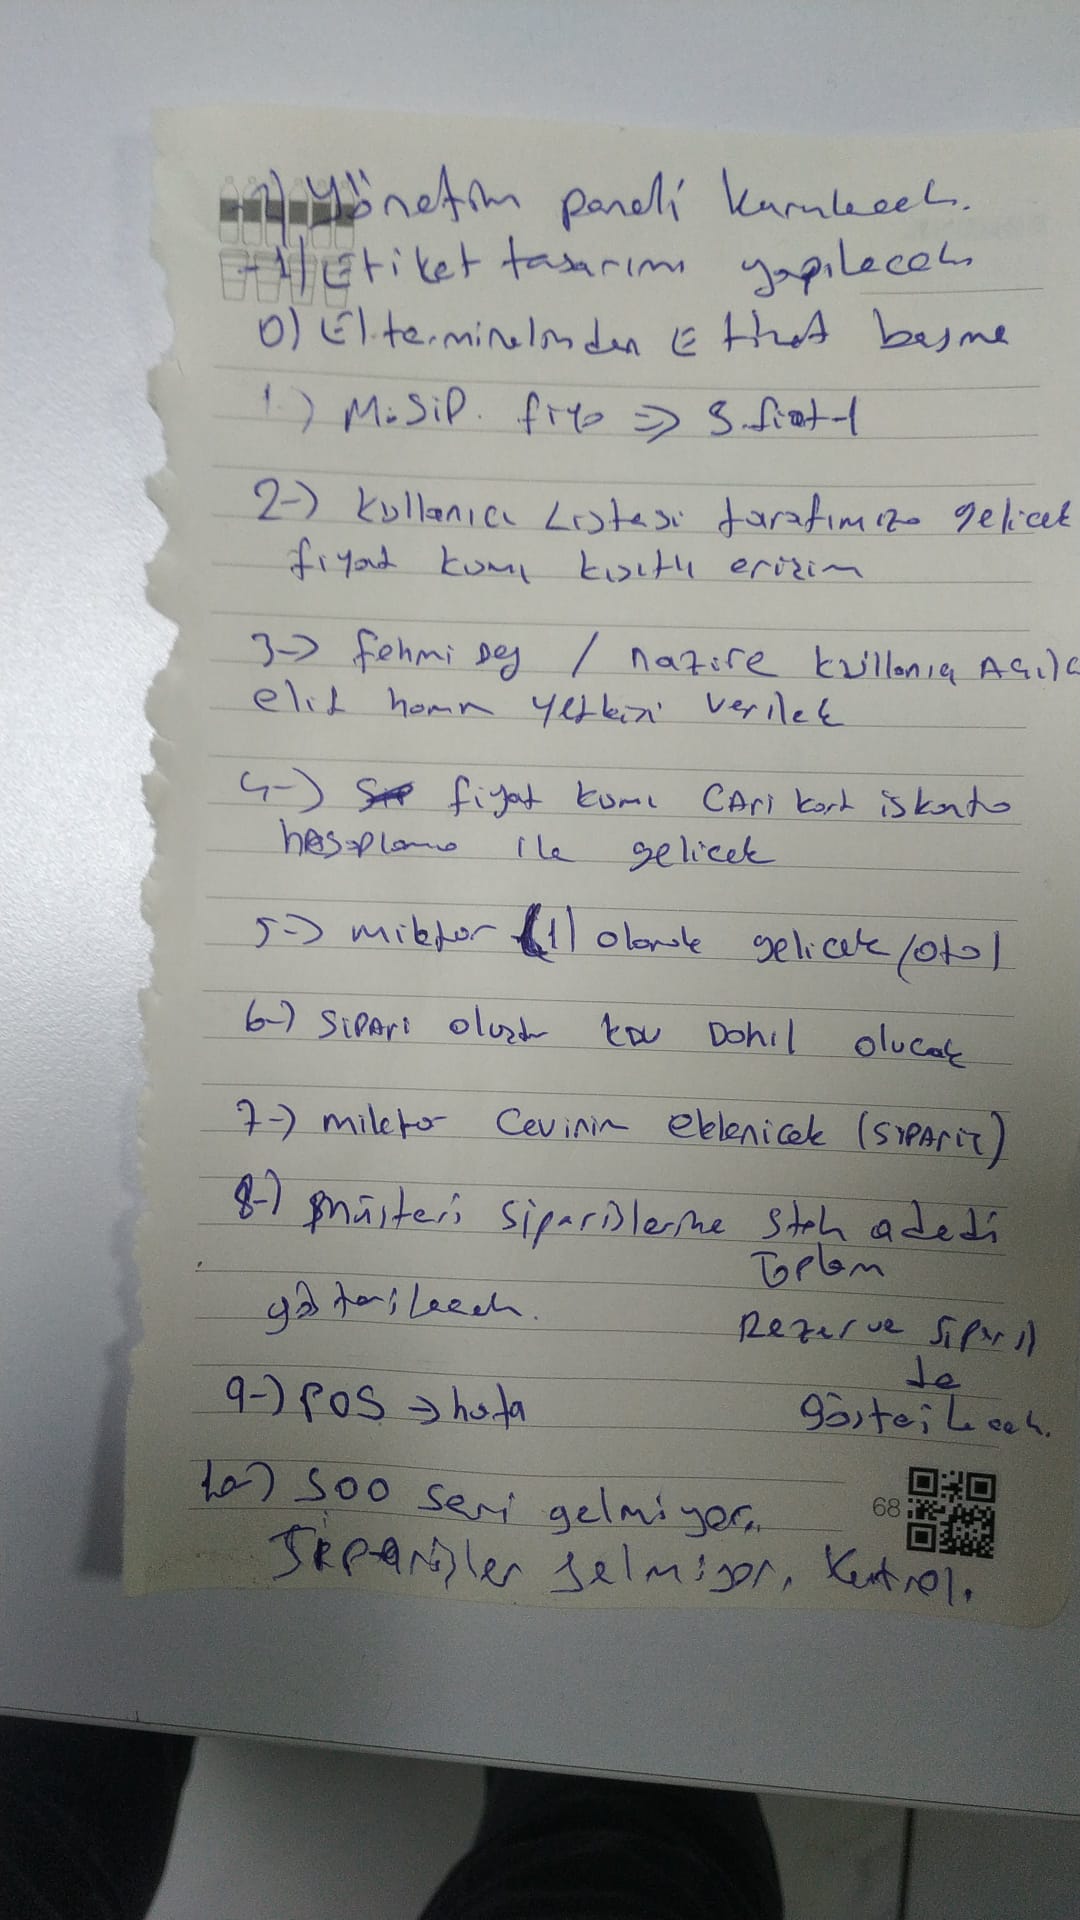 -2) Yönetim paneli kurulacak.
-1) Etiket tasarımı yapılacak
0) El terminalinden Etiket basma
1-) M.SİP. fiya => S.fiat-1
2-) Kullanıcı Listesi tarafımıza gelicek
fiyat kısmı kısıtlı erişim
3-) fehmi Bey / nazire kullanıcı Açıla
elit home yetkisi verilek
4-) fiyat kısmı CAri kart iskonto
hesaplama ile gelicek
5-) miktar (1) olarak gelicek/oto)
6-) SiPAri oluştur KDV Dahil olucak
7-) miktar Cevirim eklenicek (SİPARİŞ)
8-) müşteri siparişlerine stok adedi
Toplam
gösterilecek.
Rezerve Sipariş
de
gösterilecek.
9-) POS -> hata
10-) 500 seri gelmiyor.
68
Siparişler gelmiyor. Kontrol.